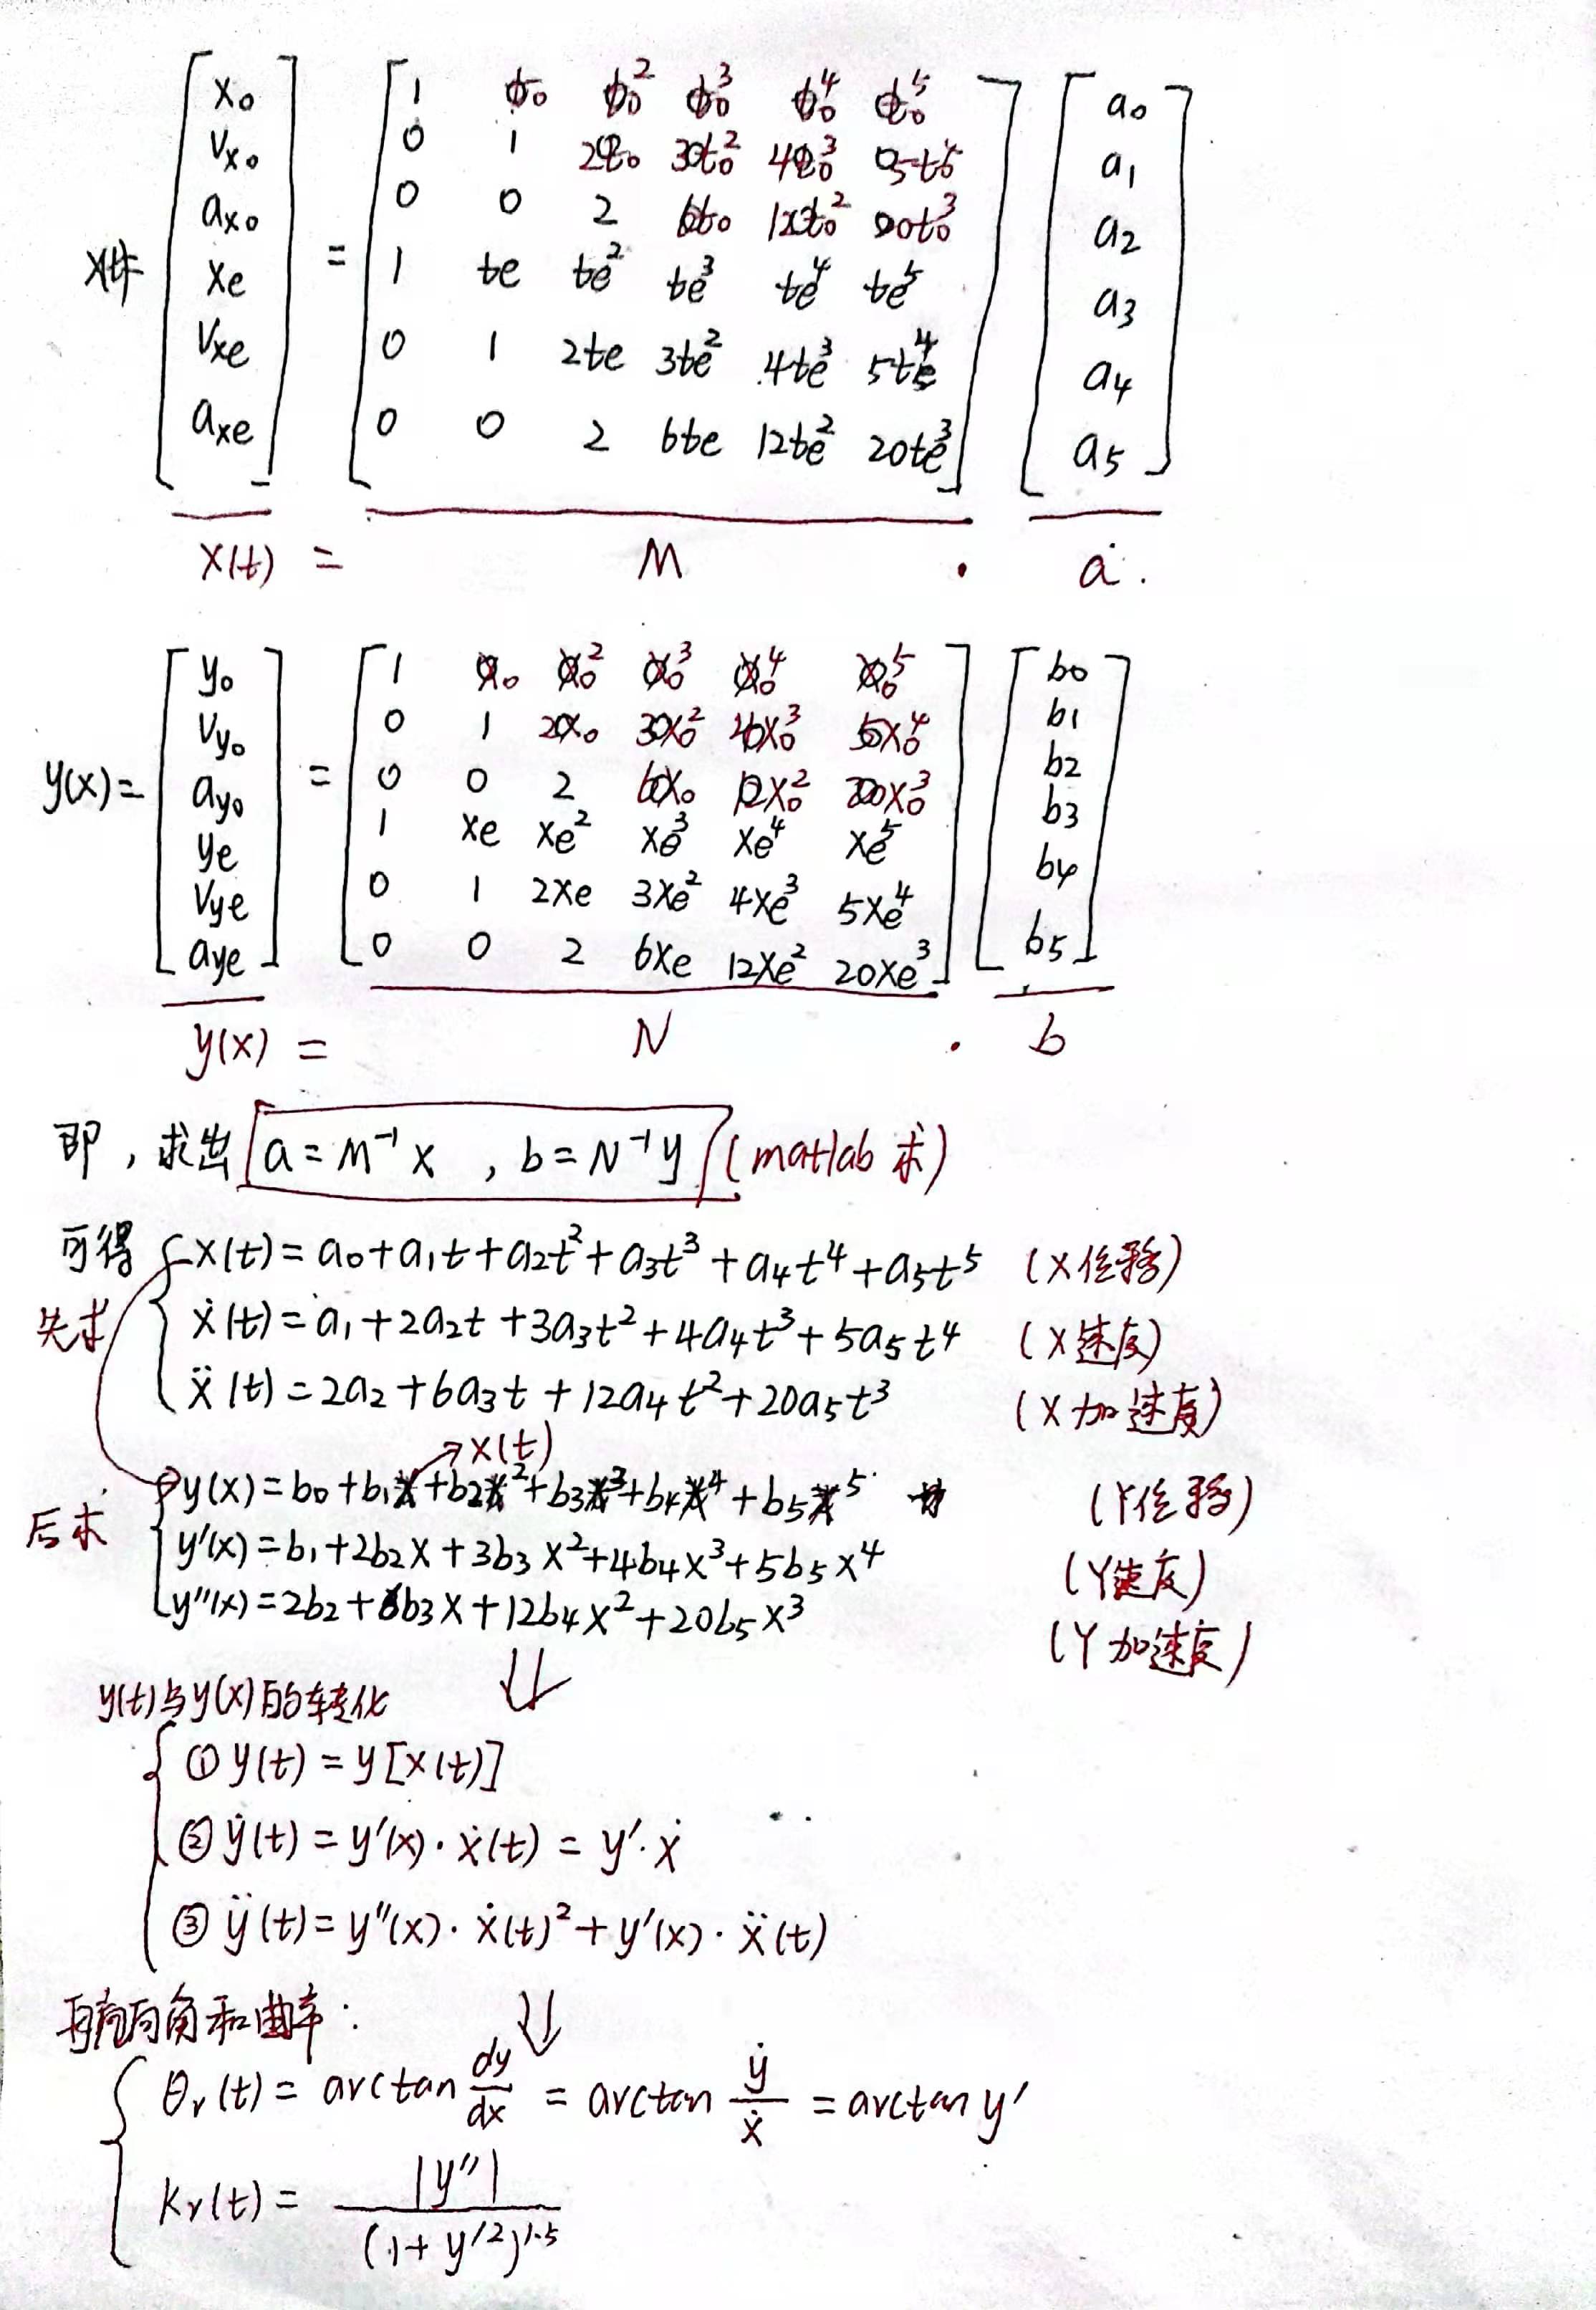 x(t)= [x₀ vₓ₀ aₓ₀ xe vxe axe] = [1 t₀ t₀² t₀³ t₀⁴ t₀⁵] [a₀ a₁ a₂ a₃ a₄ a₅]
0 1 2t₀ 3t₀² 4t₀³ 5t₀⁴
0 0 2 6t₀ 12t₀² 20t₀³
1 te te² te³ te⁴ te⁵
0 1 2te 3te² 4te³ 5te⁴
0 0 2 6te 12te² 20te³
x(t) = M · a.
y(x)= [y₀ vy₀ ay₀ ye vye aye] = [1 x₀ x₀² x₀³ x₀⁴ x₀⁵] [b₀ b₁ b₂ b₃ b₄ b₅]
0 1 2x₀ 3x₀² 4x₀³ 5x₀⁴
0 0 2 6x₀ 12x₀² 20x₀³
1 xe xe² xe³ xe⁴ xe⁵
0 1 2xe 3xe² 4xe³ 5xe⁴
0 0 2 6xe 12xe² 20xe³
y(x) = N · b
即，求出 a=M⁻¹x , b=N⁻¹y (matlab求)
可得 x(t)=a₀+a₁t+a₂t²+a₃t³+a₄t⁴+a₅t⁵ (X位移)
先求 ẋ(t)=a₁+2a₂t+3a₃t²+4a₄t³+5a₅t⁴ (X速度)
ẍ(t)=2a₂+6a₃t+12a₄t²+20a₅t³ (X加速度)
→x(t)
y(x)=b₀+b₁x+b₂x²+b₃x³+b₄x⁴+b₅x⁵ (Y位移)
后求 y'(x)=b₁+2b₂x+3b₃x²+4b₄x³+5b₅x⁴ (Y速度)
y''(x)=2b₂+6b₃x+12b₄x²+20b₅x³ (Y加速度)
y(t)与y(x)的转化
① y(t)=y[x(t)]
② ẏ(t)=y'(x)·ẋ(t)=y'·ẋ
③ ÿ(t)=y''(x)·ẋ(t)²+y'(x)·ẍ(t)
角和曲率：
θr(t)= arctan dy/dx = arctan ẏ/ẋ = arctan y'
Kr(t)= |y''|/(1+y'²)^1.5